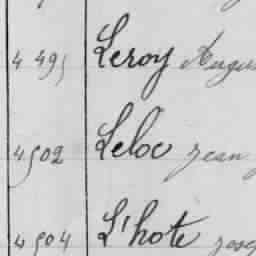 4 495 Leroy Augus
4502 Leloc jean
4504 L'hote jose